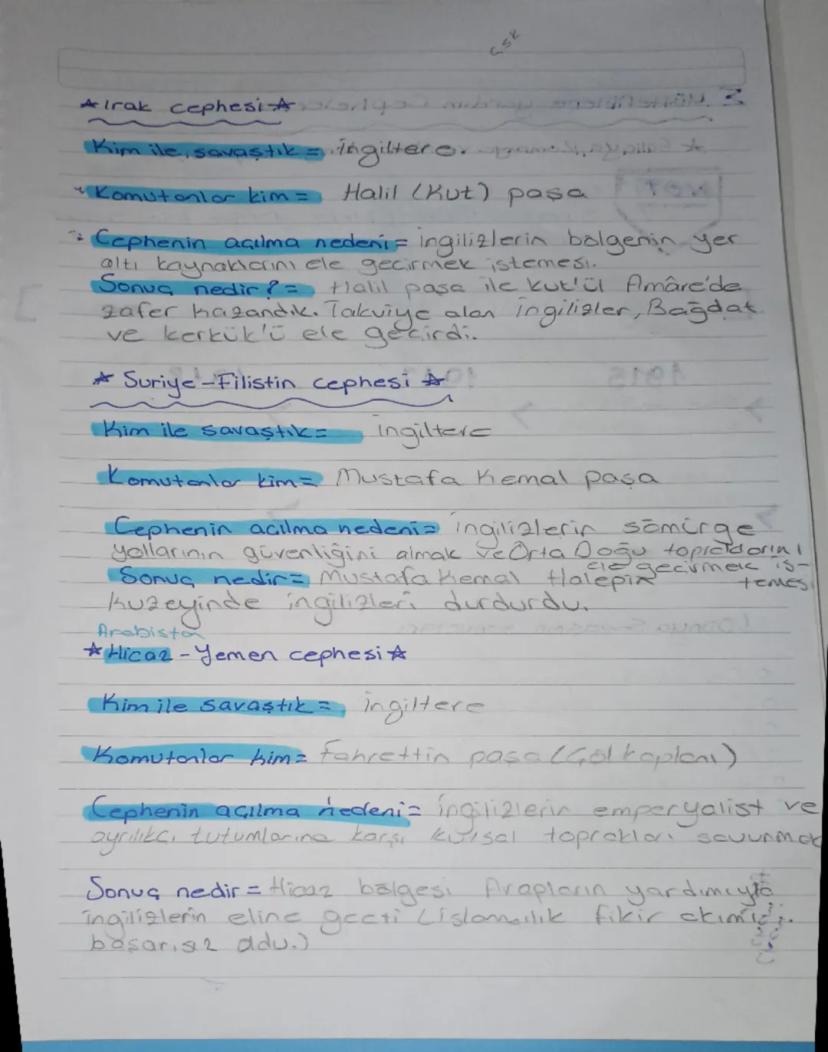 csk
★ Irak cephesi ★
Kim ile savaştık = İngiltere.
Komutanlar kim = Halil (Kut) paşa
Cephenin açılma nedeni = ingilizlerin bölgenin yer
altı kaynaklarını ele geçirmek istemesi.
Sonuç nedir? = Halil paşa ile kut'ül Amâre'de
zafer kazandık. Takviye alan ingilizler, Bağdat
ve kerkük'ü ele geçirdi.
★ Suriye-Filistin cephesi ★
Kim ile savaştık = ingiltere
Komutanlar kim = Mustafa Kemal paşa
Cephenin açılma nedeni = ingilizlerin sömürge
yollarının güvenliğini almak ve Orta Doğu topraklarını
ele geçirmek is-
Sonuç nedir = Mustafa Kemal Halepin temesi
kuzeyinde ingilizleri durdurdu.
Arabistan
★ Hicaz - Yemen cephesi ★
Kim ile savaştık = ingiltere
Komutanlar kim = Fahrettin paşa (Çöl kaplanı)
Cephenin açılma nedeni = ingilizlerin emperyalist ve
ayrılıkçı tutumlarına karşı kutsal toprakları savunmak
Sonuç nedir = Hicaz bölgesi Arapların yardımıyla
ingilizlerin eline geçti (islamcılık fikir akımı
başarısız oldu.)